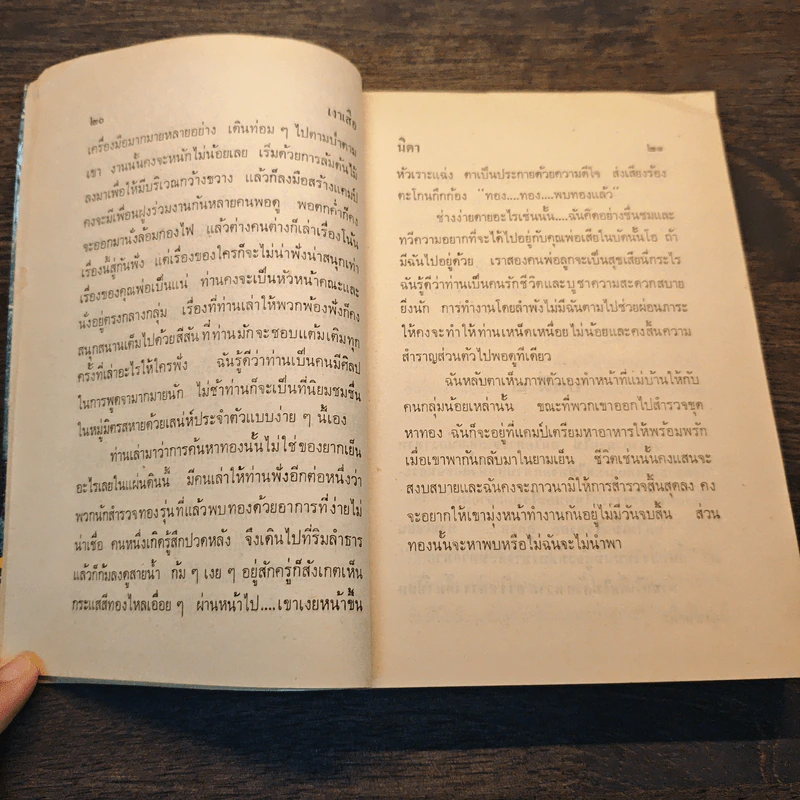 ๒๐ เงาเสือ
เครื่องมือมากมายหลายอย่าง เดินท่อม ๆ ไปตามป่าตาม
เขา งานนั้นคงจะหนักไม่น้อยเลย เริ่มด้วยการล้มต้นไม้
ลงมาเพื่อให้มีบริเวณกว้างขวาง แล้วก็ลงมือสร้างแคมป์
คงจะมีเพื่อนฝูงร่วมงานกันหลายคนพอดู พอตกค่ำก็คง
จะออกมานั่งล้อมกองไฟ แล้วต่างคนต่างก็เล่าเรื่องโน้น
เรื่องนี้สู่กันฟัง แต่เรื่องของใครก็จะไม่น่าฟังน่าสนุกเท่า
เรื่องของคุณพ่อเป็นแน่ ท่านคงจะเป็นหัวหน้าคณะและ
นั่งอยู่ตรงกลางกลุ่ม เรื่องที่ท่านเล่าให้พวกพ้องฟังก็คง
สนุกสนานเต็มไปด้วยสีสัน ที่ท่านมักจะชอบแต้มเติมทุก
ครั้งที่เล่าอะไรให้ใครฟัง ฉันรู้ดีว่าท่านเป็นคนมีศิลป
ในการพูดจามากมายนัก ไม่ช้าท่านก็จะเป็นที่นิยมชมชื่น
ในหมู่มิตรสหายด้วยเสน่ห์ประจำตัวแบบง่าย ๆ นี้เอง
ท่านเล่ามาว่าการค้นหาทองนั้นไม่ใช่ของยากเย็น
อะไรเลยในแผ่นดินนี้ มีคนเล่าให้ท่านฟังอีกต่อหนึ่งว่า
พวกนักสำรวจทองรุ่นที่แล้วพบทองด้วยอาการที่ง่ายไม่
น่าเชื่อ คนหนึ่งเกิดรู้สึกปวดหลัง จึงเดินไปที่ริมลำธาร
แล้วก็ก้มลงดูสายน้ำ ก้ม ๆ เงย ๆ อยู่สักครู่ก็สังเกตเห็น
กระแสสีทองไหลเอื่อย ๆ ผ่านหน้าไป....เขาเงยหน้าขึ้น
นิดา ๒๑
หัวเราะแฉ่ง ตาเป็นประกายด้วยความดีใจ ส่งเสียงร้อง
ตะโกนกึกก้อง "ทอง....ทอง....พบทองแล้ว"
ช่างง่ายดายอะไรเช่นนั้น....ฉันคิดอย่างชื่นชมและ
ทวีความอยากที่จะได้ไปอยู่กับคุณพ่อเสียในบัดนั้นโอ ถ้า
มีฉันไปอยู่ด้วย เราสองคนพ่อลูกจะเป็นสุขเสียนี่กระไร
ฉันรู้ดีว่าท่านเป็นคนรักชีวิตและบูชาความสะดวกสบาย
ยิ่งนัก การทำงานโดยลำพังไม่มีฉันตามไปช่วยผ่อนภาระ
ให้คงจะทำให้ท่านเหน็ดเหนื่อยไม่น้อยและคงสิ้นความ
สำราญส่วนตัวไปพอดูทีเดียว
ฉันหลับตาเห็นภาพตัวเองทำหน้าที่แม่บ้านให้กับ
คนกลุ่มน้อยเหล่านั้น ขณะที่พวกเขาออกไปสำรวจขุด
หาทอง ฉันก็จะอยู่ที่แคมป์เตรียมหาอาหารให้พร้อมพรัก
เมื่อเขาพากันกลับมาในยามเย็น ชีวิตเช่นนั้นคงแสนจะ
สงบสบายและฉันคงจะภาวนามิให้การสำรวจสิ้นสุดลง คง
จะอยากให้เขามุ่งหน้าทำงานกันอยู่ไม่มีวันจบสิ้น ส่วน
ทองนั้นจะหาพบหรือไม่ฉันจะไม่นำพา